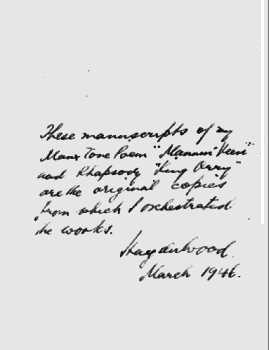 These manuscripts of my
Manx Tone Poem "Mannin Veen"
and Rhapsody "King Orry"
are the original copies
from which I orchestrated
he works.
Haydn Wood.
March 1946.